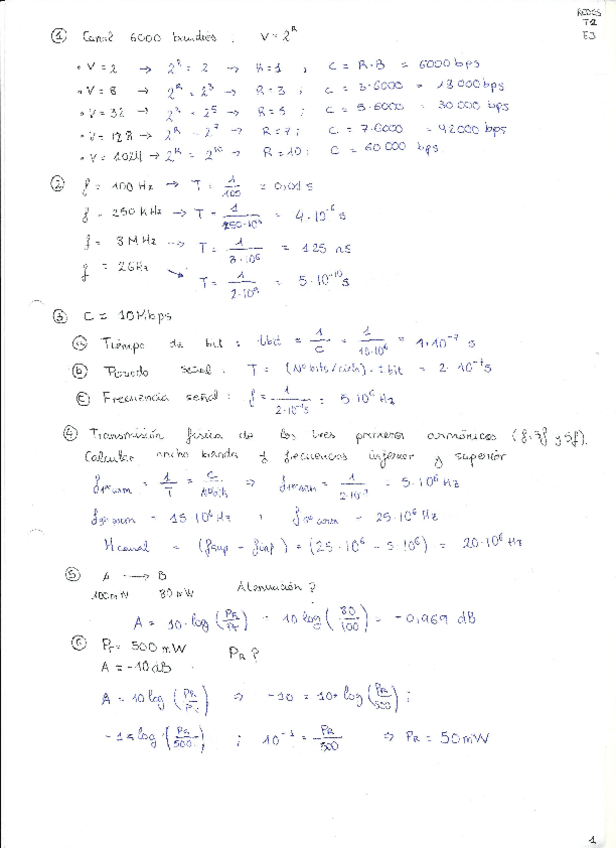 REDES
T2
E3
① Canal 6000 baudios. V = 2^R
• V = 2 → 2^R = 2 → R = 1 , C = R·B = 6000 bps
• V = 8 → 2^R = 2^3 → R = 3 , C = 3·6000 = 18000 bps
• V = 32 → 2^R = 2^5 → R = 5 ; C = 5·6000 = 30000 bps
• V = 128 → 2^R = 2^7 → R = 7 ; C = 7·6000 = 42000 bps
• V = 1024 → 2^R = 2^10 → R = 10 ; C = 60000 bps
② f = 100 Hz → T = 1/100 = 0,01 s
f = 250 KHz → T = 1/250·10^3 = 4·10^-6 s
f = 8 MHz → T = 1/8·10^6 = 125 ns
f = 2GHz → T = 1/2·10^9 = 5·10^-10 s
③ C = 10Mbps
ⓐ Tiempo de bit : tbit = 1/C = 1/10·10^6 = 1·10^-7 s
ⓑ Periodo señal. T = (Nº bits/ciclo)·tbit = 2·10^-7 s
ⓒ Frecuencia señal : f = 1/2·10^-7 = 5·10^6 Hz
④ Transmisión física de los tres primeros armónicos (f, 3f y 5f).
Calcular ancho banda y frecuencias inferior y superior
f1er arm = 1/T = ⇒ f1er arm = 1/2·10^-7 = 5·10^6 Hz
= 15·10^6 Hz , = 25·10^6 Hz
H canal = (fsup - finf) = (25·10^6 - 5·10^6) = 20·10^6 Hz
⑤ A → B
100mW 80mW Atenuación?
A = 10·log (PR/PT) = 10 log (80/100) = -0,969 dB
⑥ PT = 500 mW PR?
A = -10 dB
A = 10 log (PR/PT) ⇒ -10 = 10·log (PR/500) ;
-1 = log (PR/500) ; 10^-1 = PR/500 ⇒ PR = 50mW
1